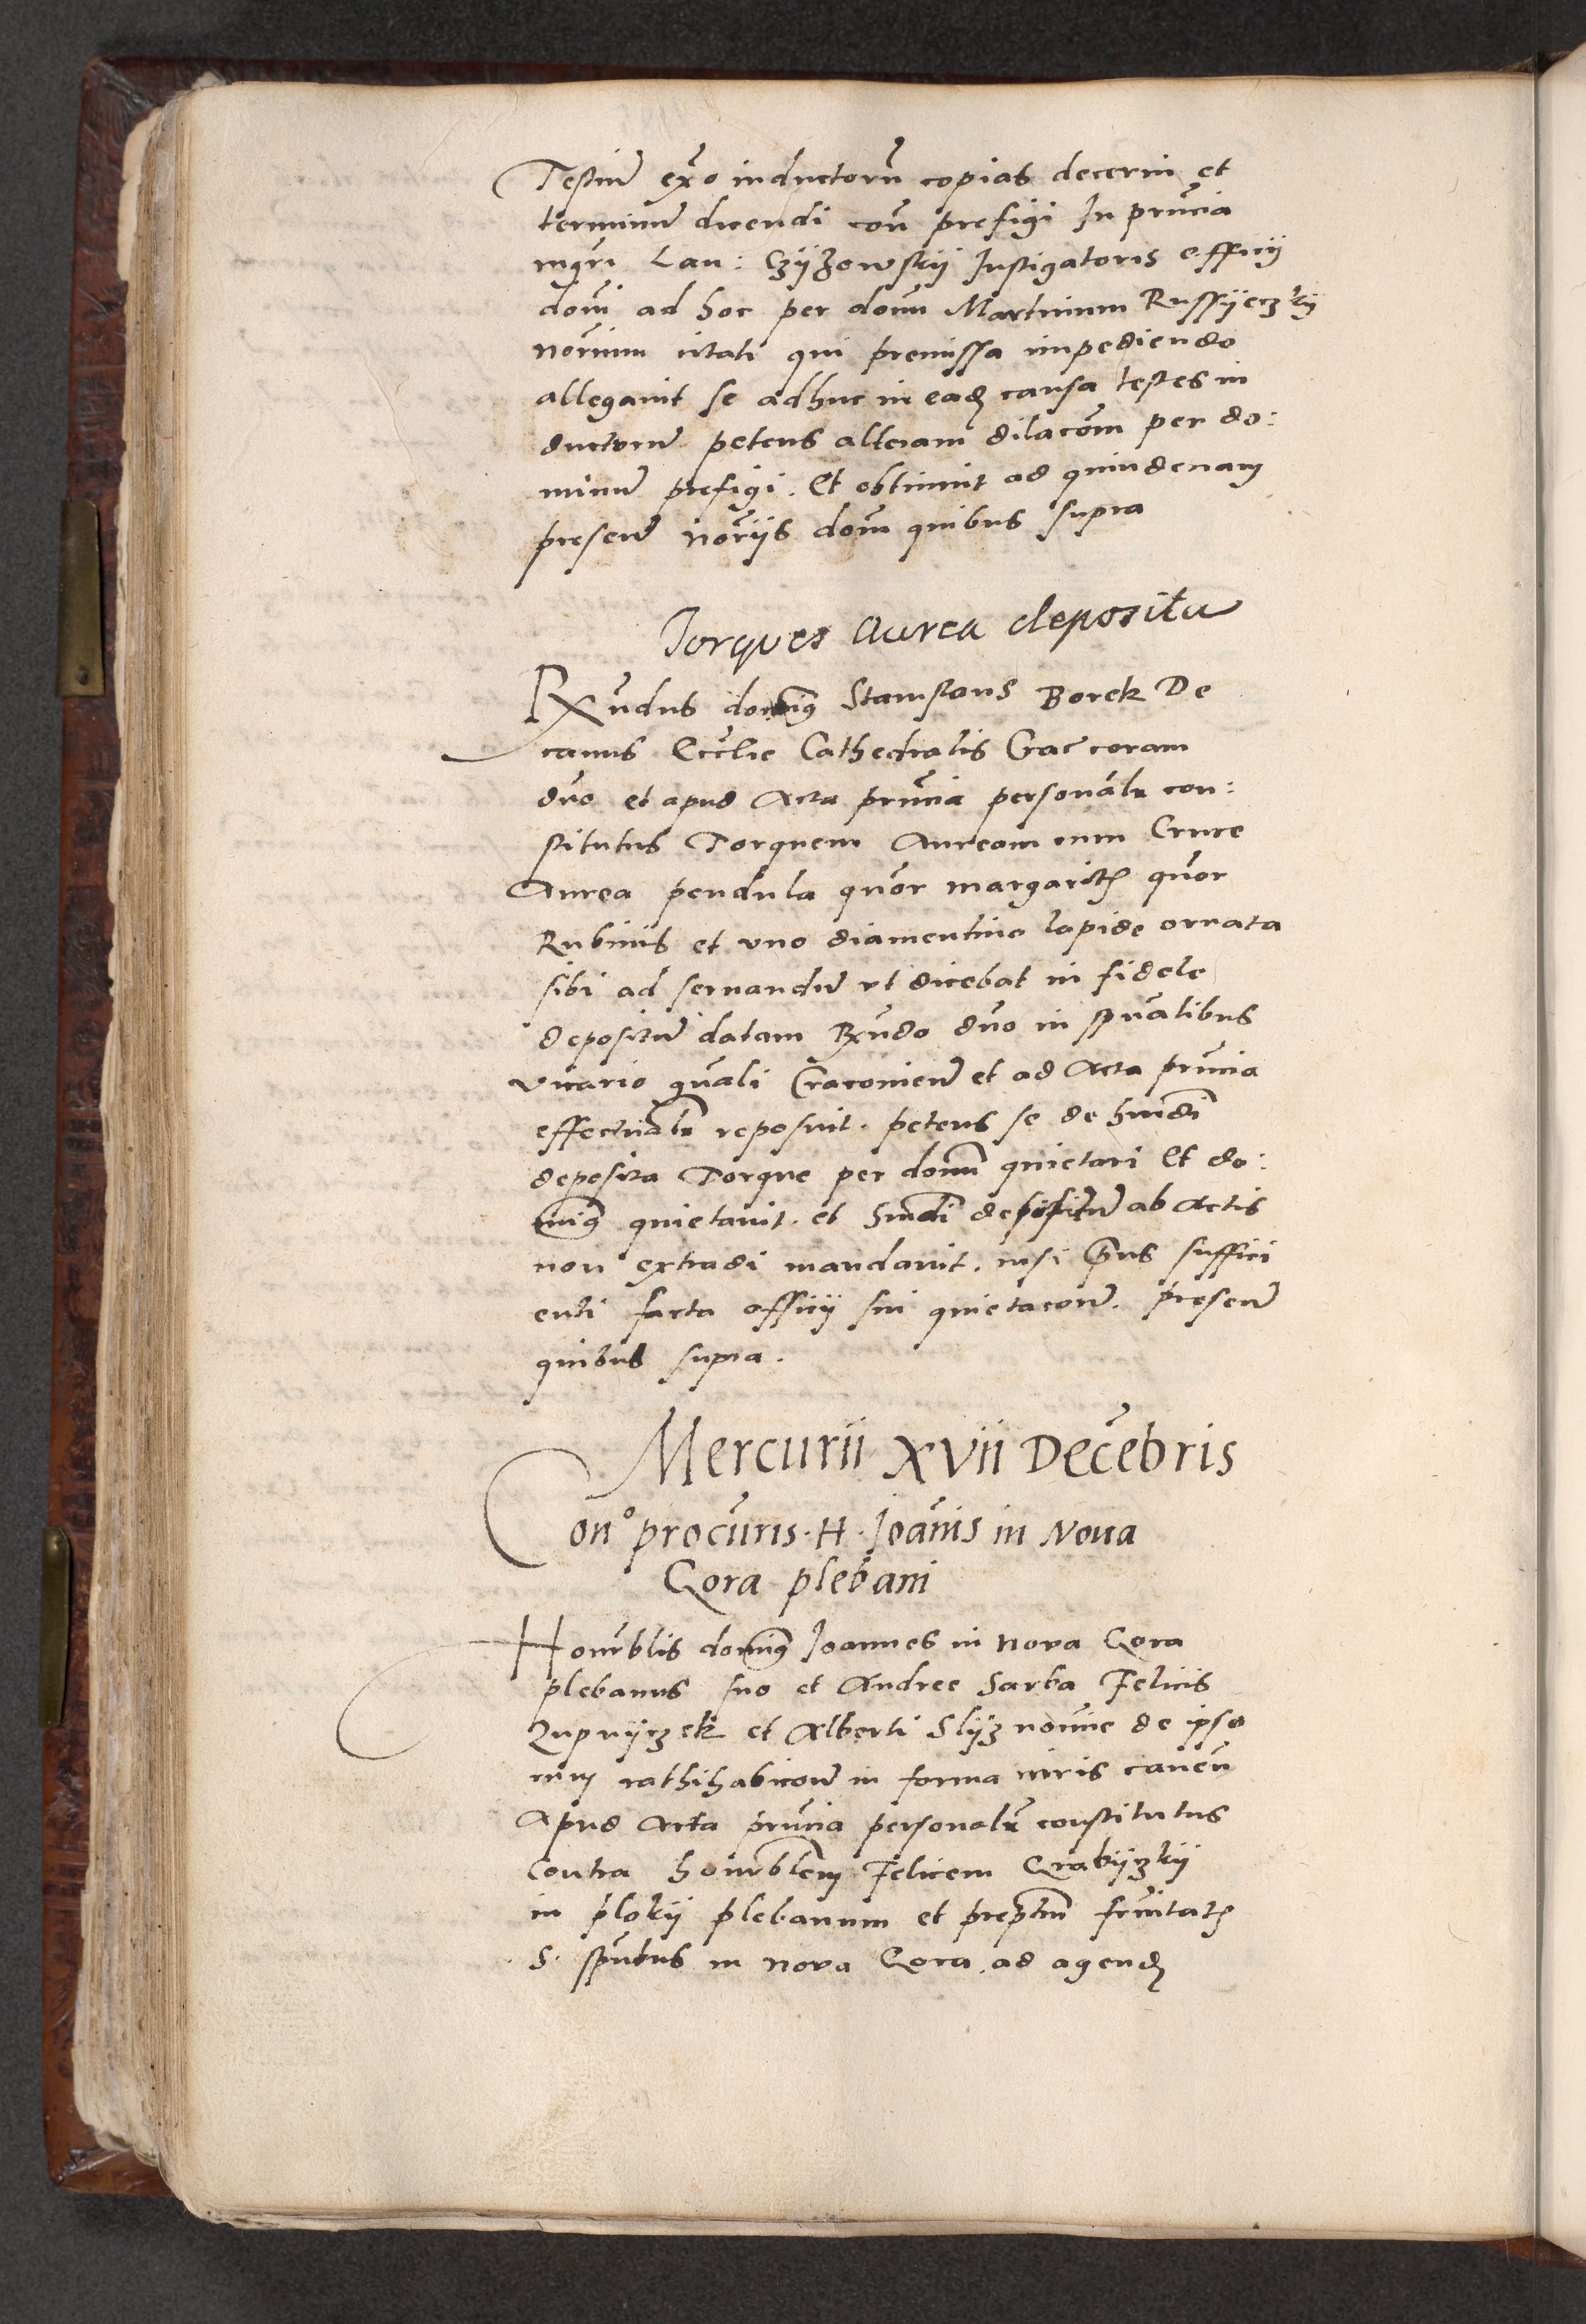 Testiu͂ ex͂o inductoru͂ copias decerni et
terminu͂ dicendi con͂ prefigi In pn͂cia
mgri Lau: Czÿzowskÿ Instigatoris officÿ
dom͂ ad hoc per dom͂ Martinum Russÿeczkÿ
norium citati qui premissa impediendo
allegauit se adhuc in ead causa testes in
ducturu͂ petens alteram dilaco͂m per do:
minu͂ prefigi. Et obtinuit ad quindenam
presen͂ nor͂ÿs dom͂ quibus supra
Torques Aurea deposita
Rx͂ndus dominus Stanislaus Borek De
canus Eccl͂ie Cathedralis Crac͂ coram
dn͂o et apud Acta pn͂cia personalr con:
stitutus Torquem Auream cum Cruce
Aurea pendula qu͂or margarit qu͂or
Rubinis et vno diamentino lapide ornata
sibi ad seruandu͂ vt dicebat in fidele
depositu͂ datam Rx͂ndo dn͂o in sp͂ualibus
vicario gn͂ali Cracouien͂ et ad Acta pn͂cia
effectualr reposuit. petens se de hm͂di
deposita Torque per dom͂ quietari Et do:
minus quietauit. et hm͂di depositu͂ ab Actis
non extradi mandauit. nisi prius suffici
enti facta officÿ sui quietacon͂. presen͂
quibus supra.
Mercurii XVII Dece͂bris
Con͂o procu͂ris. H. Joa͂nis in Noua
Gora plebani
Hono͂rblis dominus Joannes in Nova Gora
plebanus suo et Andree Sarba Felicis
Zupnÿczek et Alberti Slÿz nom͂ie de ipso
rum rathihabicon͂ in forma iuris cauen͂
Apud Acta pn͂cia personalr constitutus
Contra hono͂rblem Felicem Grabÿzkÿ
in plokÿ plebanum et prep͂tum fr͂nitat
S. Sp͂utus in Nova Gora. ad agend